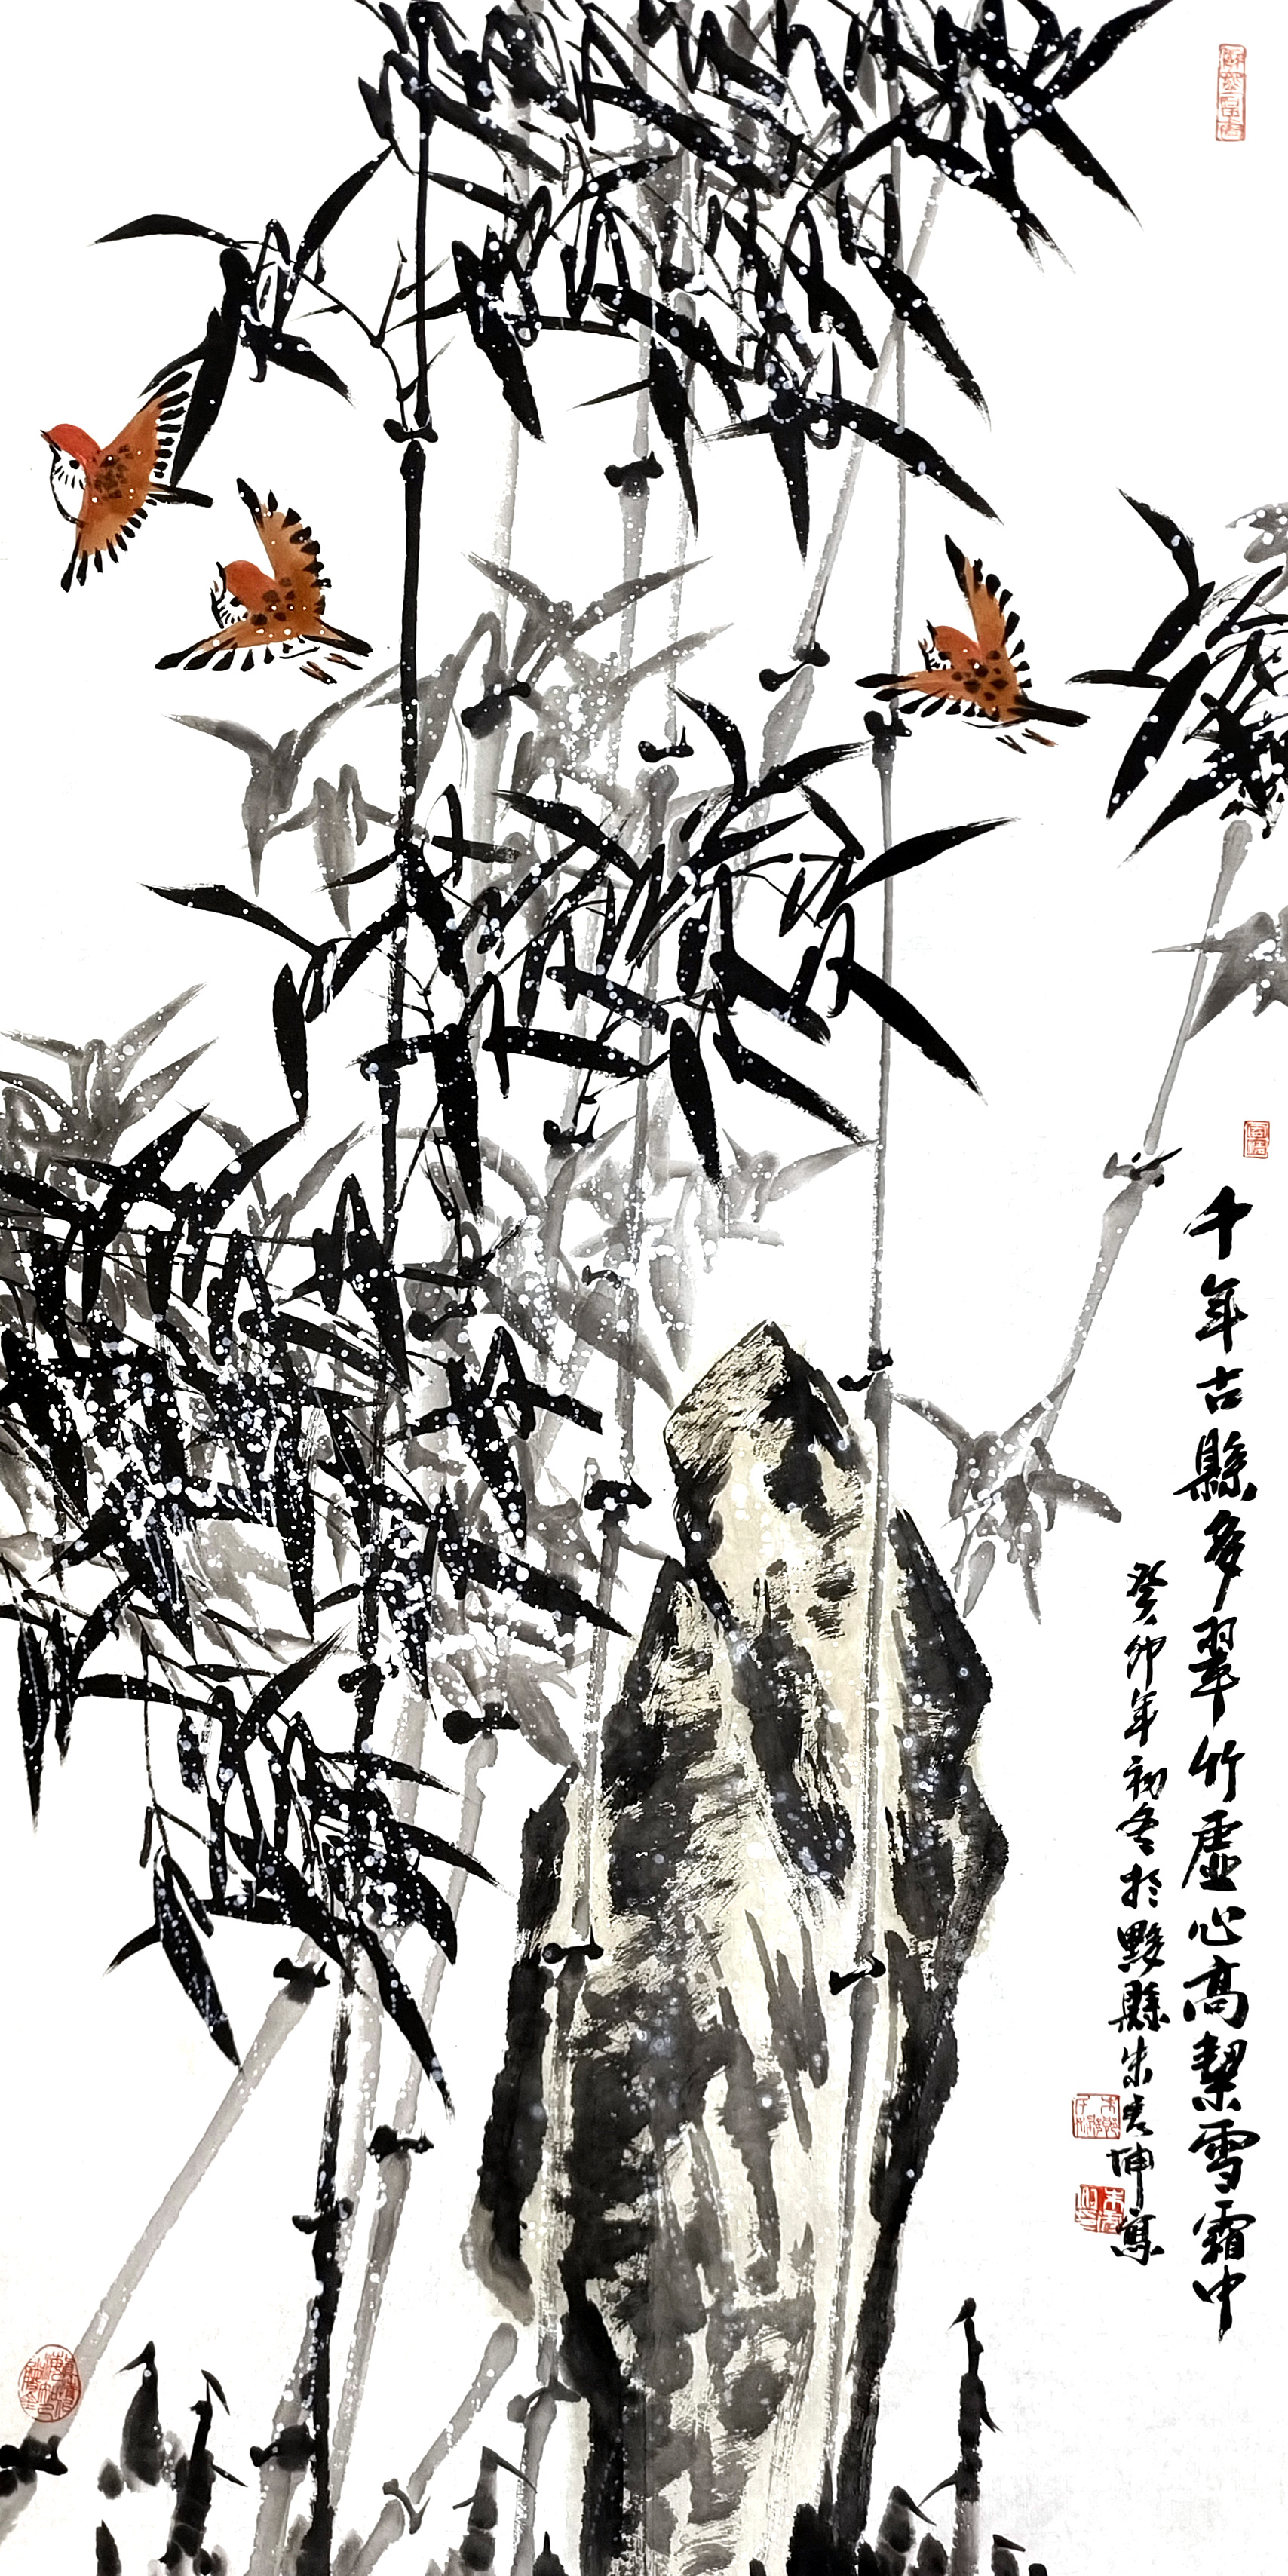 千年古縣多翠竹虛心高絜雪霜中
癸卯年初冬於黟縣朱宏坤寫